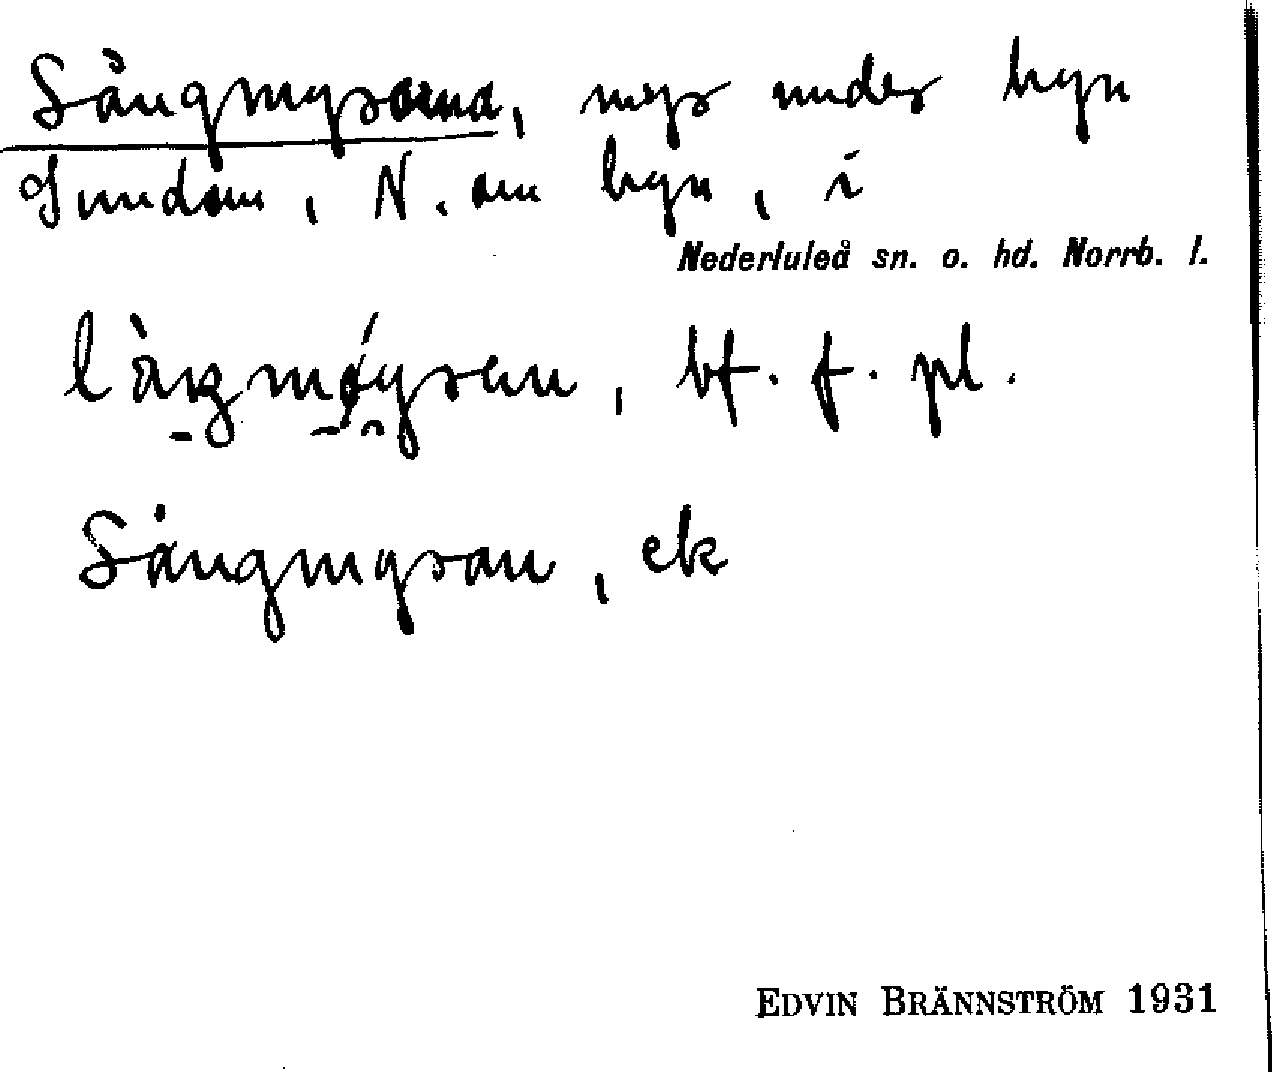 Långmyrarna, myr under byn
Sundom, N. om byn, i
Nederluleå sn. o. hd. Norrb. l.
bf. f. pl.
Långmyran, ek
EDVIN BRÄNNSTRÖM 1931